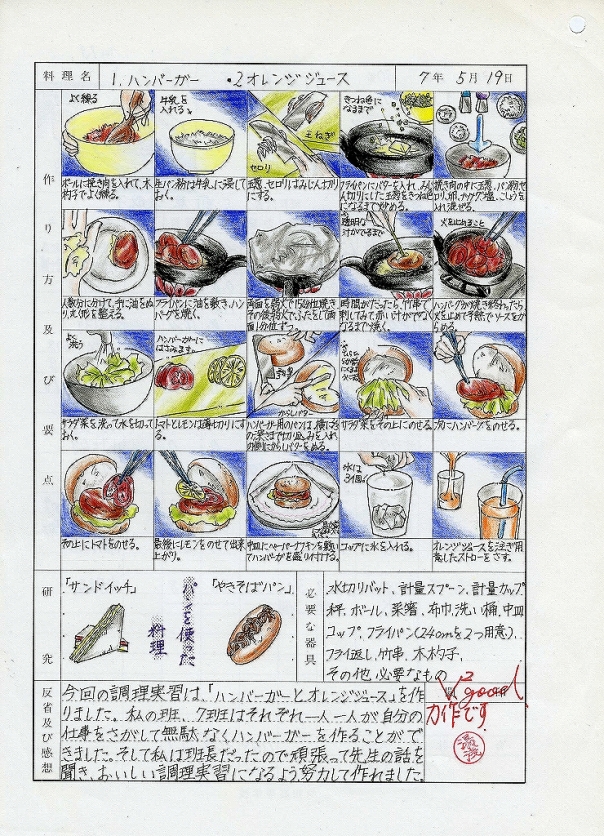 料理名
1. ハンバーガー ・2 オレンジジュース
7年 5月 19日
作り方及び要点
よく練る
牛乳を
入れる。
玉ねぎ
セロリ
きつね色に
なるまで
ボールに挽き肉を入れて、木
杓子でよく練る。
生パン粉は牛乳に浸して
おく。
玉葱、セロリはみじん切り
にする。
フライパンにバターを入れ、みじ
ん切りにした玉葱をきつね色
になるまで炒める。
挽き肉の中に玉葱、パン粉、セ
ロリ、卵、ナツメグ、塩、こしょうを
入れ混ぜる。
透明な
汁がでるまで
火を止めること
人数分に分けて、手に油をぬ
り丸く形を整える。
フライパンに油を敷き、ハン
バーグを焼く。
両面を強火で1分位焼き
その後弱火でふたをして両
面1分位ずつ。
時間がたったら、竹串で
刺してみて、赤い汁がでなく
なるまで焼く。
ハンバーグが焼き終わったら
火を止めて手早くソースをか
らめる。
よく
洗う
ハンバーガーに
はさみます。
からしバター
サラダ菜を洗って水を切って
おく。
トマトとレモンは薄切りにす
る。
サラダ菜をその上にのせる。
次にハンバーグをのせる。
氷は
3個。
その上にトマトをのせる。
最後にレモンをのせて出来
上がり。
中皿にペーパーナフキンを敷いて
ハンバーガを盛り付ける。
コップに氷を入れる。
オレンジジュースを注ぎ用
意したストローをさす。
研究
「サンドイッチ」
パンを使った
料理
「やきそばパン」
必要な器具
水切りバット、計量スプーン、計量カップ
秤、ボール、菜箸、布巾、洗い桶、中皿
コップ、フライパン(24cmを2つ用意)、
フライ返し、竹串、木杓子、
その他、必要なもの
反省及び感想
今回の調理実習は、「ハンバーガーとオレンジジュース」を作
りました。私の班、7班はそれぞれ一人一人が自分の
仕事をさがして無駄なくハンバーガーを作ることがで
きました。そして私は班長だったので頑張って先生の話を
聞き、おいしい調理実習になるよう、努力して作れました。
V²good
力作です